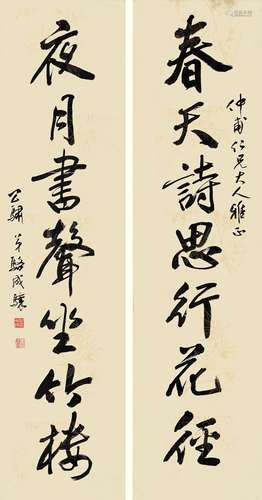 仲甫仁兄大人雅正
春天詩思行花徑
夜月書聲坐竹樓
公驌弟駱成驤